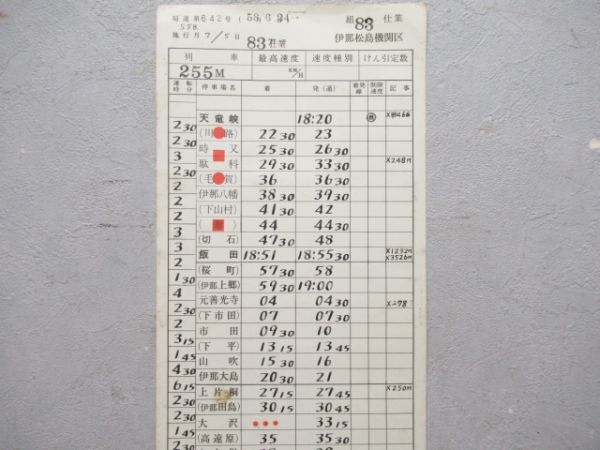 局達第642号 (58.6.24)
558 組 83 仕業
施行月 7/5日 83仕業 伊那松島機関区
列車 最高速度 速度種別 けん引定数
255M KM/H
運転時分 停車場名 着 発(通) 着発線 制限速度 記事
天竜峡 18:20
2 30 (川路) 22 30 23
2 30 時又 25 30 26 30
3 駄科 29 30 33 30 X248M
2 30 (毛賀) 36 36 30
2 伊那八幡 38 30 39 30
2 (下山村) 41 30 42
2 ( ) 44 44 30
3 (切石) 47 30 48
3 飯田 18:51 18:55 30 X1232M X3526M
2 (桜町) 57 30 58
1 30 (伊那上郷) 59 30 19:00
4 元善光寺 04 04 30 X278
2 30 (下市田) 07 07 30
2 市田 09 30 10
3 15 (下平) 13 15 13 45
1 45 山吹 15 30 16
4 30 伊那大島 20 30 21
6 15 上片桐 27 15 27 45 X250M
2 30 (伊那田島) 30 15 30 45
2 30 大沢 33 15
(高遠原) 35 35 30